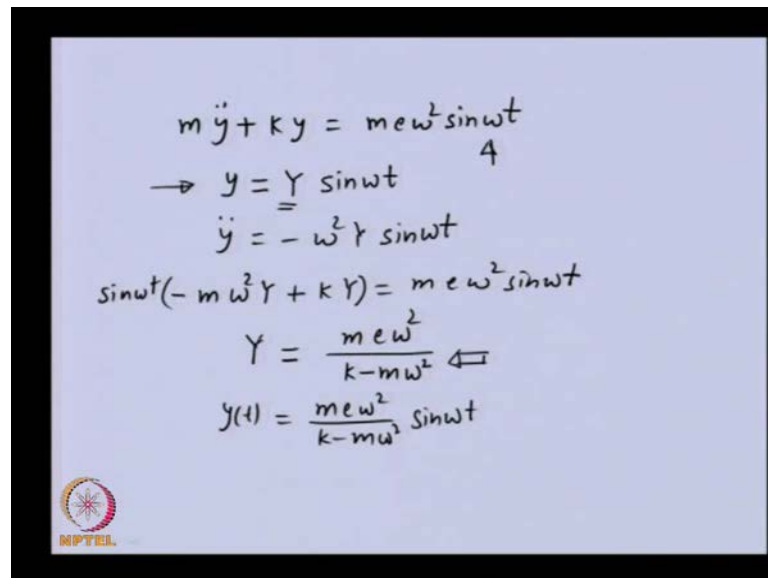 m ÿ + k y = m e ω² sin ωt
4
→ y = Y sin ωt
ÿ = - ω² Y sin ωt
sin ωt (- m ω² Y + k Y) = m e ω² sin ωt
Y = m e ω² / (k - m ω²) ⇐
y(t) = m e ω² / (k - m ω²) sin ωt
NPTEL